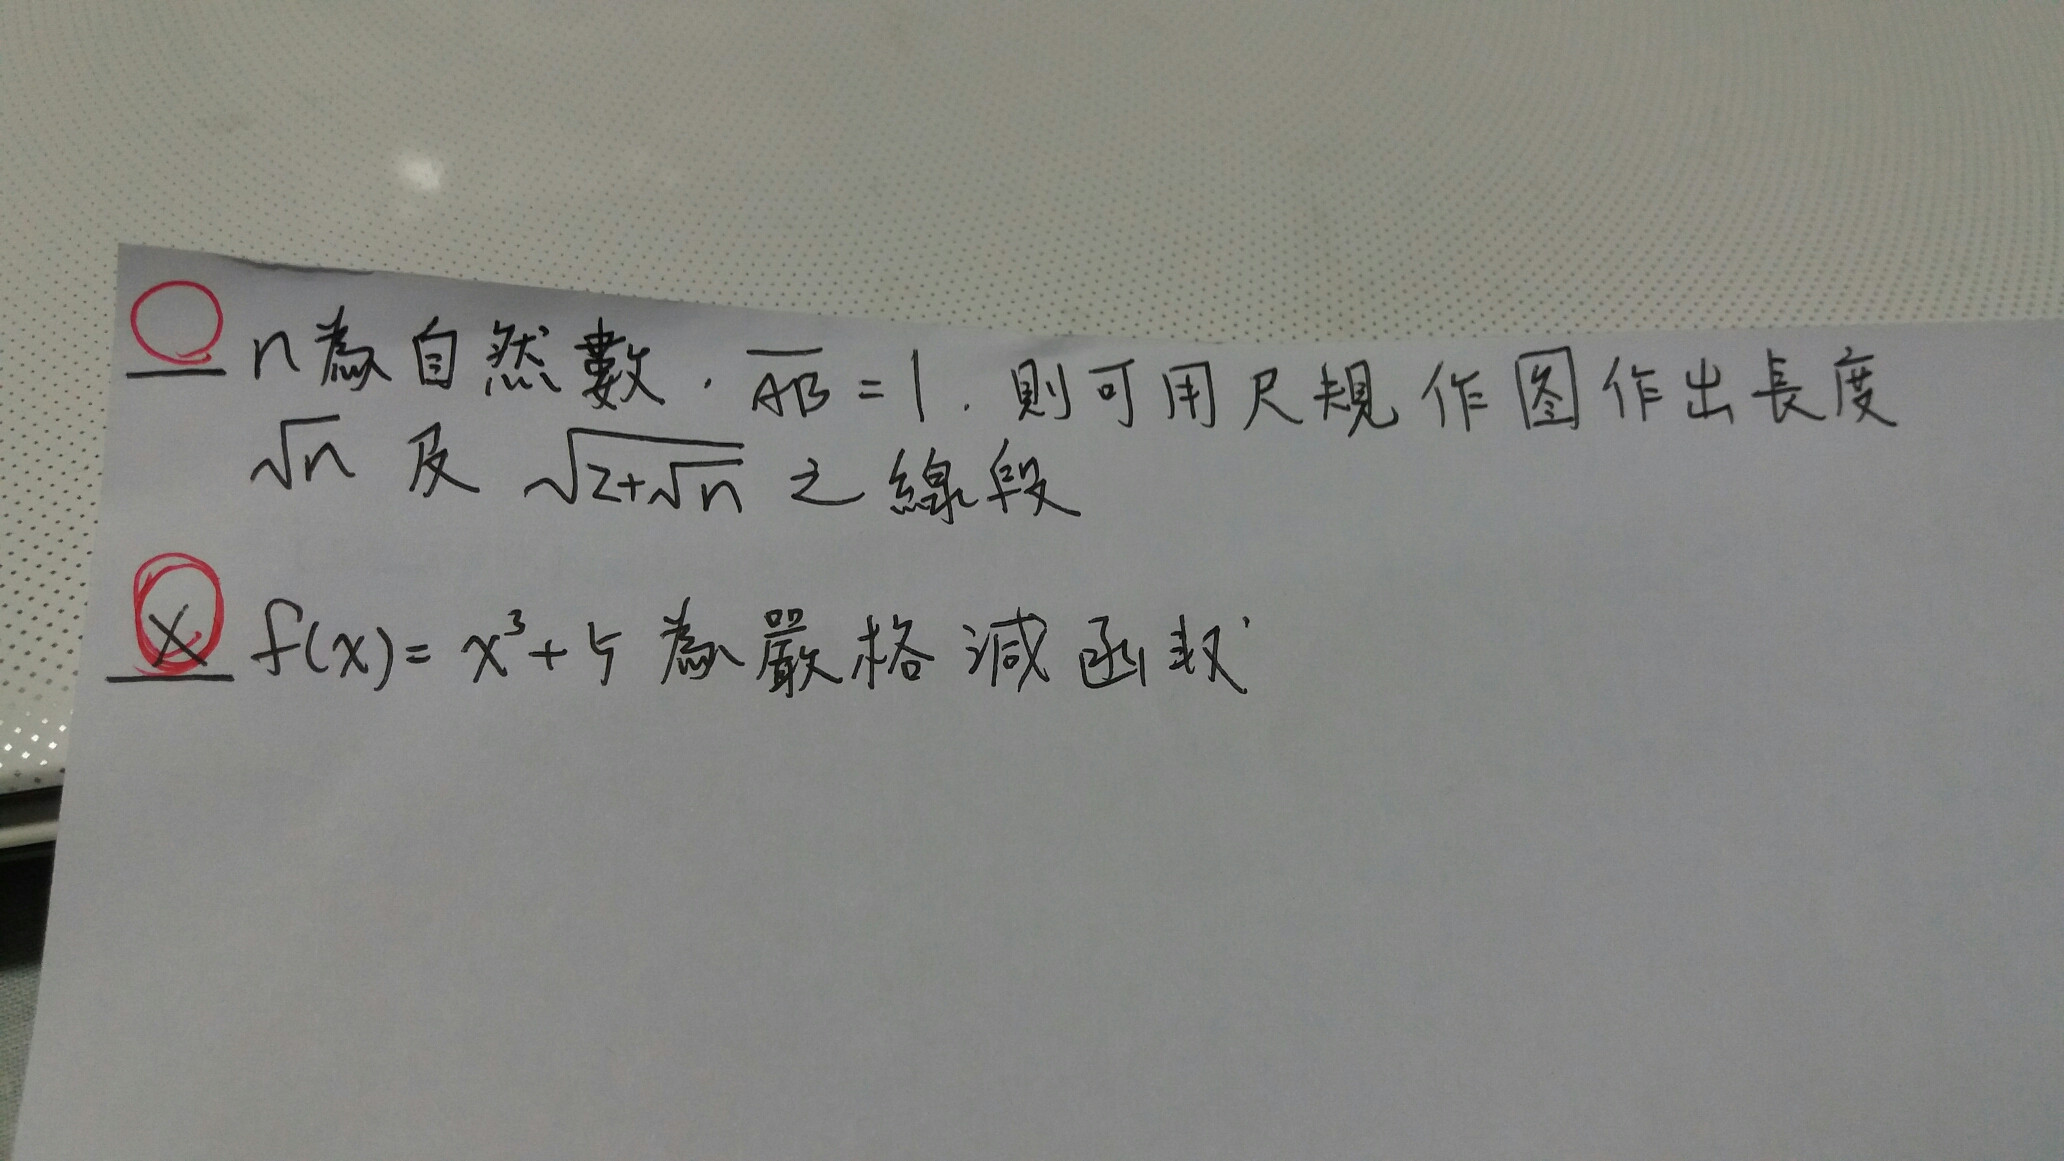 ○ n為自然數．AB=1．則可用尺規作図作出長度
√n 及 √2+√n 之線段
× f(x)=x³+5 為嚴格減函数